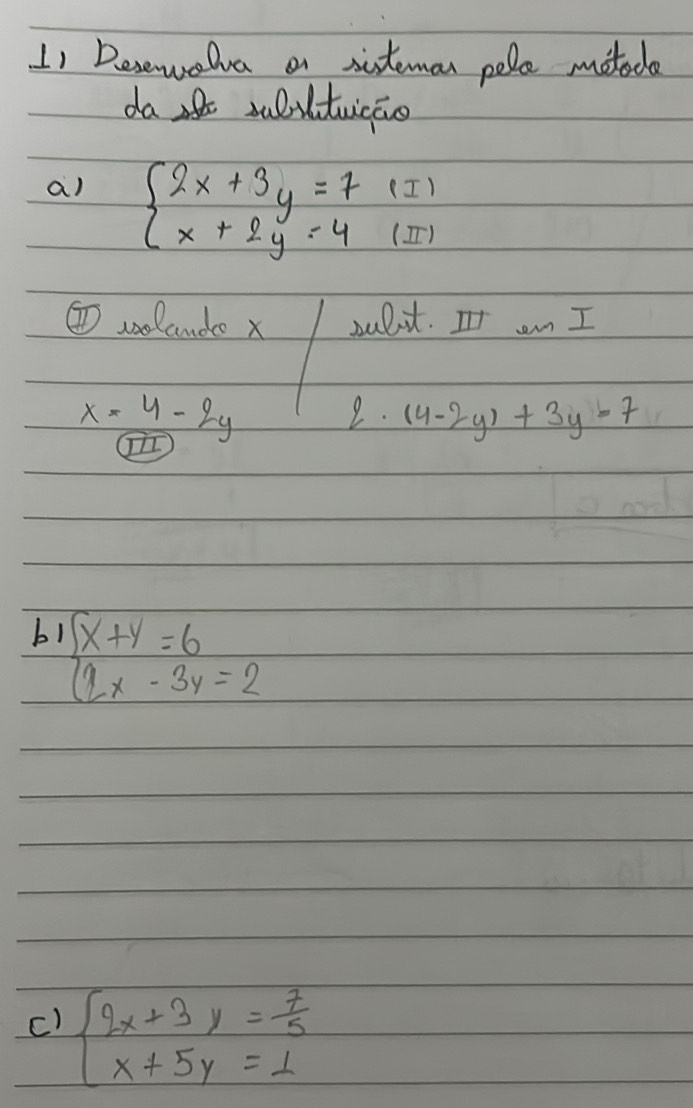 1) Desenvolva os sistemas pelo método
da substituição
a) {2x + 3y = 7 (I)
{x + 2y = 4 (II)
(II) isolando x / subst. III em I
x = 4 - 2y 2 . (4-2y) + 3y = 7
(III)
b) {x + y = 6
{2x - 3y = 2
c) {2x + 3y = 7/5
{x + 5y = 1